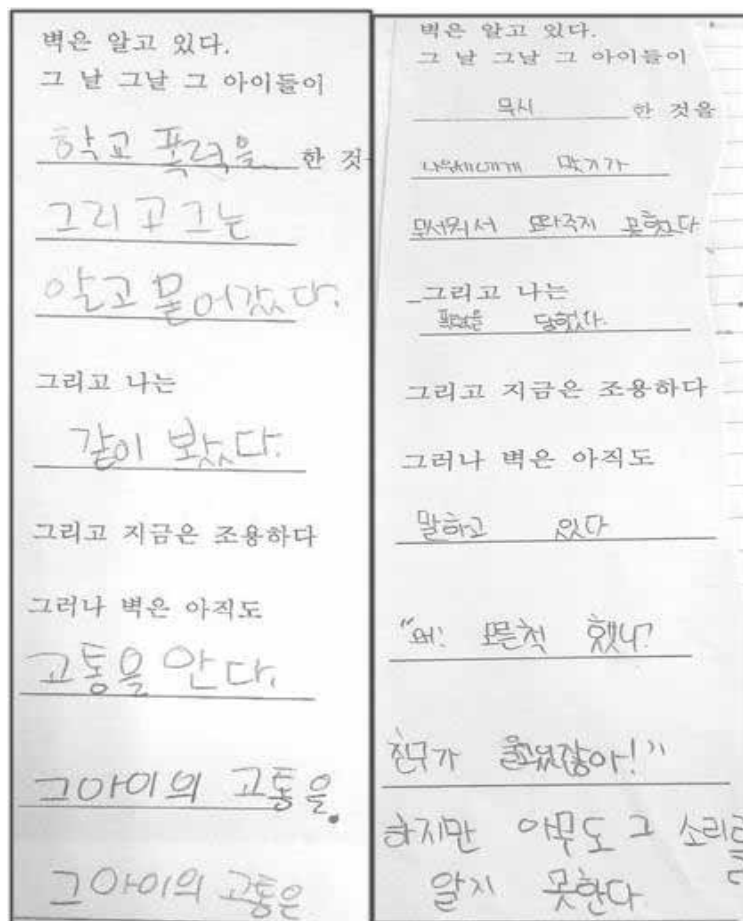 벽은 알고 있다.
그 날 그날 그 아이들이
학교 폭력을 한 것
그리고 그는
알고 묻어갔다.
그리고 나는
같이 봤다.
그리고 지금은 조용하다
그러나 벽은 아직도
고통을 안다.
그아이의 고통을.
그아이의 고통은
벽은 알고 있다.
그 날 그날 그 아이들이
무시 한 것을
맞기가
무서워서 도와주지 못했다
그리고 나는
폭력을 당했다.
그리고 지금은 조용하다
그러나 벽은 아직도
말하고 있다
"왜! 모른척 했니?
친구가 울고있잖아!"
하지만 아무도 그 소리를
알지 못한다